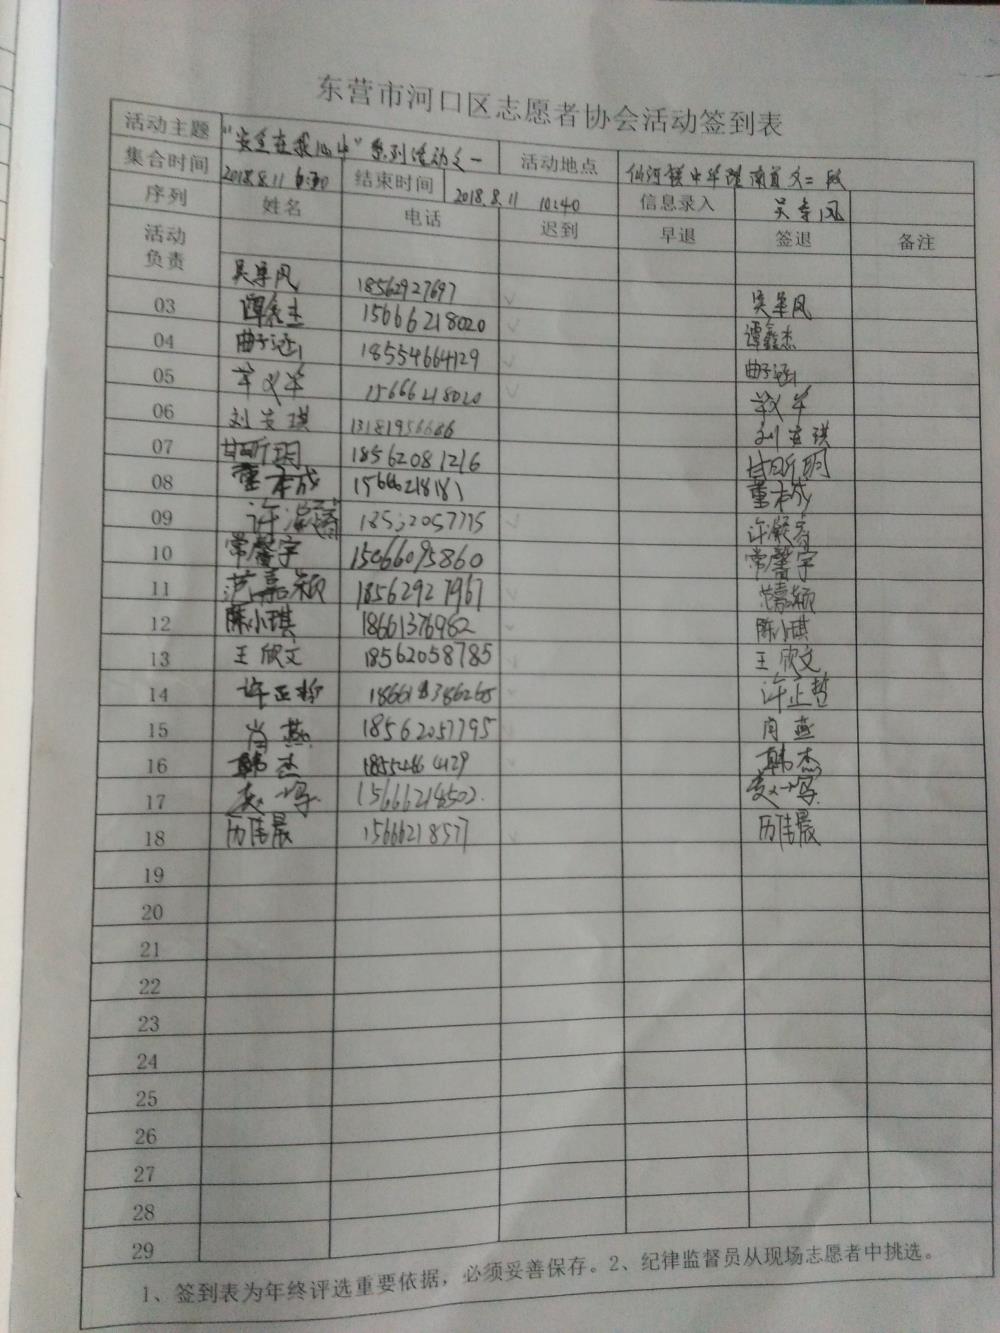 东营市河口区志愿者协会活动签到表
活动主题 "安全在我心中"系列活动之一 活动地点
集合时间 2018.8.11 结束时间 2018.8.11 10:40 信息录入
序列 姓名 电话 迟到 早退 签退 备注
活动负责 18562927697
03 谭鑫杰 15666218020 谭鑫杰
04 曲子涵 18554664129 曲子涵
05 15666218020
06 刘安琪 刘安琪
07 甘昕玥 18562081216 甘昕玥
08 董本成 董本成
09 许凝睿 许凝睿
10 常馨宇 15066095860 常馨宇
11 范嘉颖 18562927967 范嘉颖
12 陈小琪 18661376982 陈小琪
13 王欣文 18562058785 王欣文
14 许正哲 许正哲
15 肖燕 18562057795 肖燕
16 韩杰 韩杰
17 15666218502
18 历伟晟 15666218577 历伟晟
19
20
21
22
23
24
25
26
27
28
29
1、签到表为年终评选重要依据，必须妥善保存。2、纪律监督员从现场志愿者中挑选。